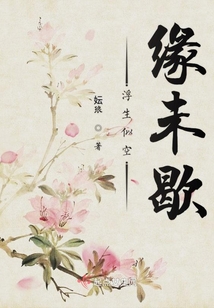 缘未歇
浮生似空
◎著